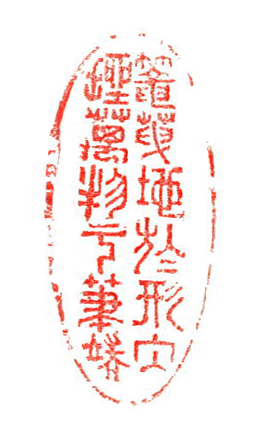 籠天地於形内
挫萬物于筆端